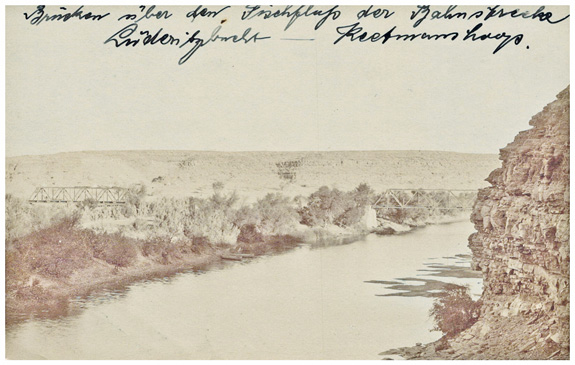 Brücken über den Fischfluß der Bahnstrecke
Lüderitzbucht — Keetmanshoop.